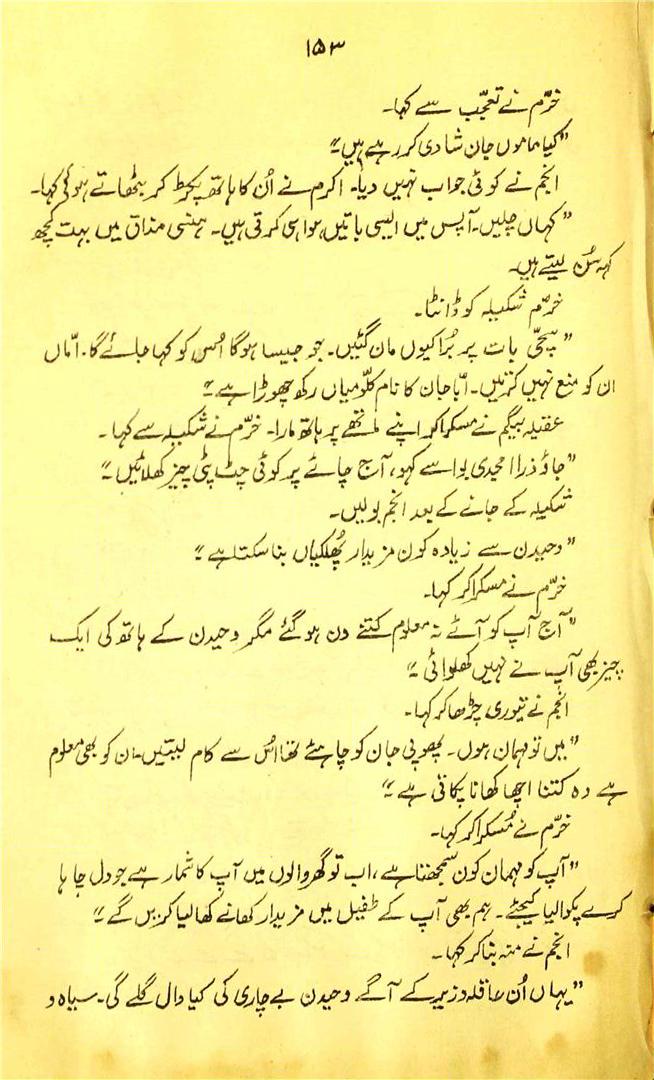 ۱۵۳
خرّم نے تعجّب سے کہا۔
”کیا ماموں جان شادی کر رہے ہیں۔“
انجم نے کوئی جواب نہیں دیا۔ اکرم نے اُن کا ہاتھ پکڑ کر بٹھاتے ہوئے کہا۔
”کہاں چلیں۔ آپس میں ایسی باتیں ہوا ہی کرتی ہیں۔ ہنسی مذاق میں بہت کچھ
کہہ سُن لیتے ہیں۔
خرّم شکیلہ کو ڈانٹا۔
”سچّی بات پر بُرا کیوں مان گئیں۔ جو جیسا ہوگا اُس کو کہا جائے گا۔ امّاں
ان کو منع نہیں کرتیں۔ ابّا جان کا نام کلّو میاں رکھ چھوڑا ہے۔“
عقیلہ بیگم نے مسکرا کر اپنے ماتھے پر ہاتھ مارا۔ خرّم نے شکیلہ سے کہا۔
”جاؤ ذرا امجدی بوا سے کہو، آج چائے پر کوئی چٹ پٹی چیز کھلائیں۔“
شکیلہ کے جانے کے بعد انجم بولیں۔
”وحیدن سے زیادہ کون مزیدار پھلکیاں بنا سکتا ہے۔“
خرّم نے مسکرا کر کہا۔
”آج آپ کو آئے نہ معلوم کتنے دن ہو گئے مگر وحیدن کے ہاتھ کی ایک
چیز بھی آپ نے نہیں کھلوائی۔“
انجم نے تیوری چڑھا کر کہا۔
”میں تو مہمان ہوں۔ پھوپی جان کو چاہئے تھا اُس سے کام لیتیں۔ ان کو بھی معلوم
ہے وہ کتنا اچھا کھانا پکاتی ہے۔“
خرّم نے مُسکرا کر کہا۔
”آپ کو مہمان کون سمجھتا ہے، اب تو گھر والوں میں آپ کا شمار ہے جو دل چاہا
کرے پکوا لیا کیجئے۔ ہم بھی آپ کے طفیل میں مزیدار کھانے کھا لیا کریں گے۔“
انجم نے منہ بنا کر کہا۔
”یہاں اُن عاقلہ وزیر کے آگے وحیدن بے چاری کی کیا دال گلے گی۔ سیاہ و